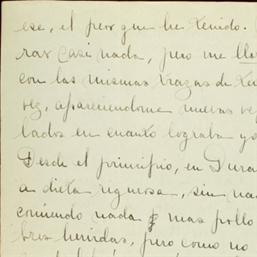 ese, el peor que he tenido.
rar casi nada, pero me lle
con las mismas trazas de
vez, apareciendome nuevas ve
lados en cuanto lograba
Desde el principio, en Dura
a dieta rigurosa, sin
comiendo nada mas pollo
bres hervidas, pero como no